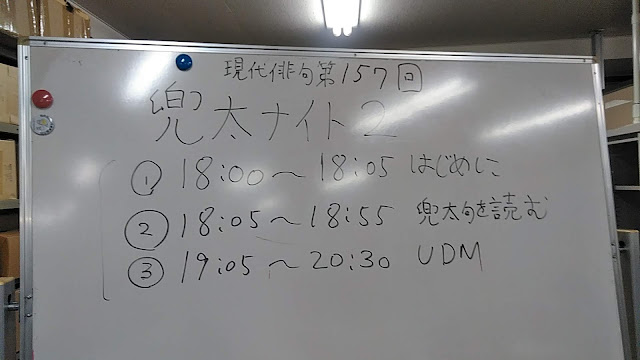 現代俳句第157回
兜太ナイト2
① 18:00～18:05 はじめに
② 18:05～18:55 兜太句を読む
③ 19:05～20:30 UDM